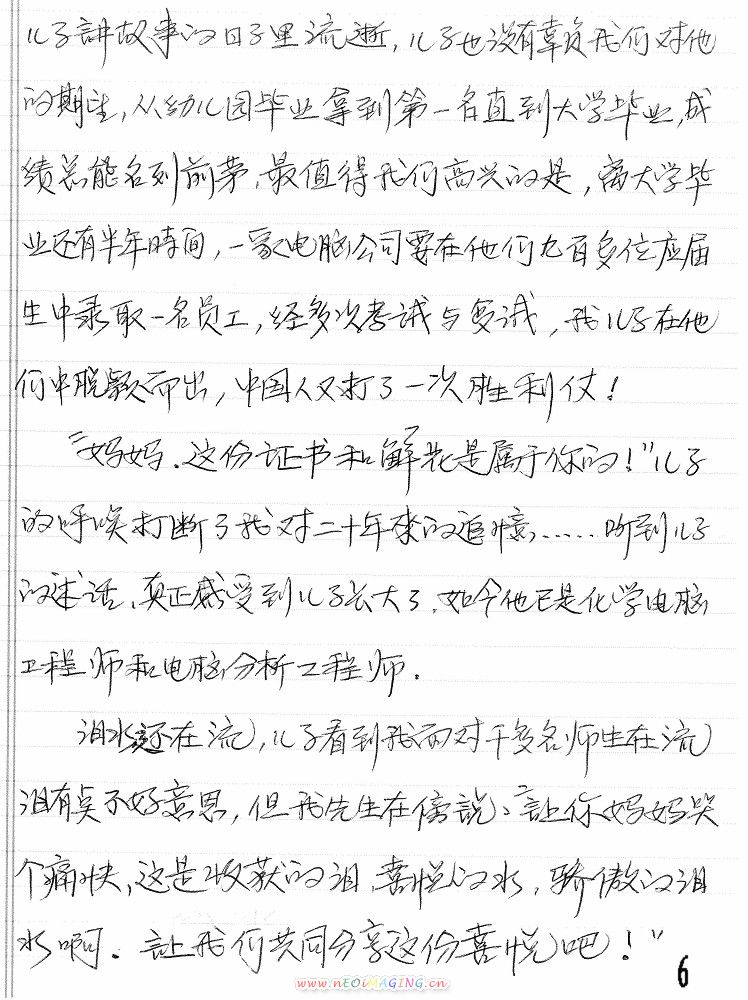 儿子講故事的日子里流逝，儿子也没有辜负我们对他
的期望，从幼儿园毕业拿到第一名直到大学毕业，成
绩总能名列前茅，最值得我们高兴的是，离大学毕
业还有半年時间，一家电脑公司要在他们九百多位应届
生中录取一名员工，经多次考试与复试，我儿子在他
们中脱颖而出，中国人又打了一次胜利仗！
“妈妈．这份证书和鲜花是属于你的！”儿子
的呼唤打断了我对二十年来的追憶……听到儿子
的述话，真正感受到儿子长大了．如今他已是化学电脑
工程师和电脑分析工程师．
泪水还在流，儿子看到我面对千多名师生在流
泪有点不好意思，但我先生在傍説：“讓你妈妈哭
个痛快，这是收获的泪，喜悦的水，骄傲的泪
水啊．讓我们共同分享这份喜悦吧！”
6
www.nEOiMAGING.cn